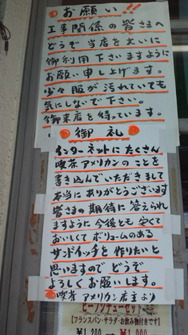 お願い!!
工事関係の皆さまへ
どうぞ当店を大いに
御利用下さいますように
お願い申し上げます。
少々服が汚れていても
気にしないで下さい。
御来店を待っています。
御礼
インターネットにたくさん
喫茶アメリカンのことを
書き込んでいただきまして
本当にありがとうございます
皆さまの期待に答えられ
ますように今後とも安くて
おいしくてボリュームのある
サンドイッチを作りたいと
思いますのでどうぞ
よろしくお願いします。
喫茶アメリカン店主より
ビーフシチューセット
【フランスパン・サラダ・お飲み物付きです】